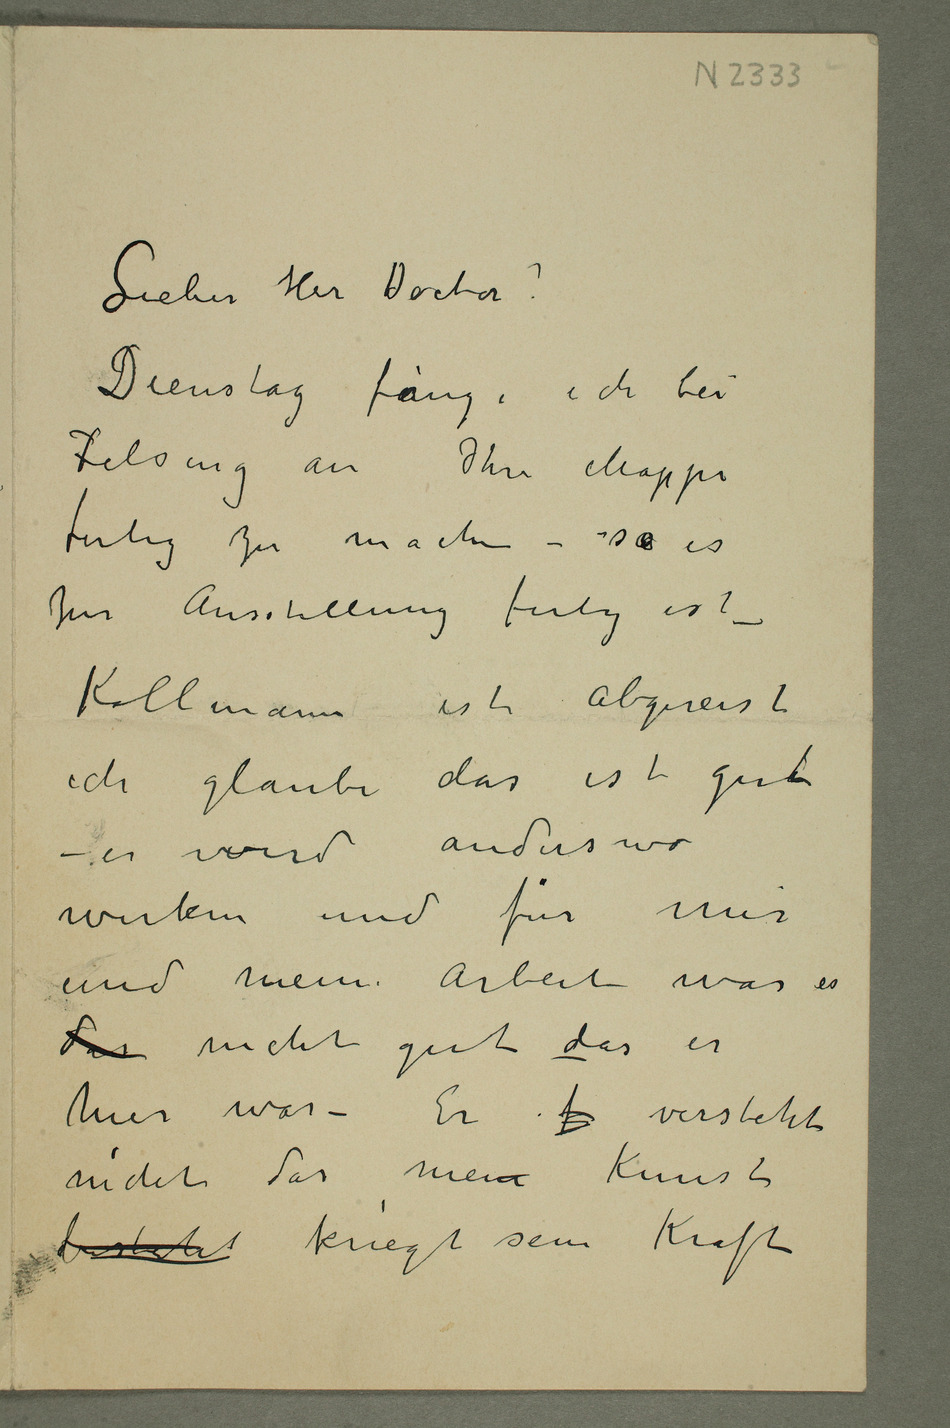 N 2333
Lieber Her Doctor!
Dienstag fange ich bei
Felsing an Ihre Mappe
fertig zu machen – so es
zur Ausstellung fertig ist –
Kollmann ist abgereist
ich glaube das ist gut
– er wird anderswo
wirken und für mir
und meine Arbeit war es
das nicht gut das er
hier war – Er f versteht
nicht das mein Kunst
besteht kriegt sein Kraft